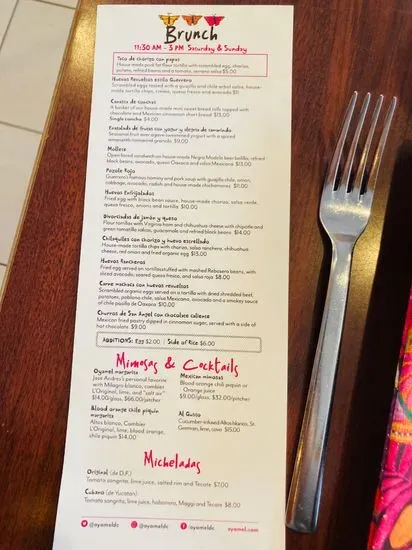 Brunch
11:30 AM - 3 PM Saturday & Sunday
Taco de chorizo con papas
House made pork fat flour tortilla with scrambled egg, chorizo,
potato, refried beans and a tomato, serrano salsa $5.00
Huevos Revueltos estilo Guerrero
Scrambled eggs tossed with a guajillo and chile arbol salsa, house-
made tortilla chips, crema, queso fresco and avocado $11
Canasta de conchas
A basket of our house-made mini sweet bread rolls topped with
chocolate and Mexican cinnamon short bread $13.00
Single concha $4.00
Ensalada de frutas con yogur y alegria de amaranto
Seasonal fruit over agave sweetened yogurt with a spiced
amaranth naranaral granola $9.00
Mollete
Open-faced sandwich on house-made Negra Modelo beer bolillo, refried
black beans, avocado, queso Oaxaca and salsa Mexicana $13.00
Pozole Rojo
Guerrero's famous hominy and pork soup with guajillo chile, onion,
cabbage, avocado, radish and house-made chicharrones $11.00
Huevos Enfrijolados
Fried egg with black bean sauce, house-made chorizo, salsa verde,
queso fresco, onions and tortilla $10.00
Divorciados de jamón y queso
Flour tortillas with Virginia ham and chihuahua cheese with chipotle and
green tomatillo salsas, guacamole and refried black beans $14.00
Chilaquiles con chorizo y huevo estrellado
House-made tortilla chips with chorizo, salsa ranchera, chihuahua
cheese, red onion and fried organic egg $13.00
Huevos Rancheros
Fried egg served on tortillas stuffed with mashed Rebosero beans, with
sliced avocado, soared queso fresco, and salsa roja $8.00
Carne machaca con huevos revueltos
Scrambled organic eggs served on a tortilla with dried shredded beef,
potatoes, poblano chile, salsa Mexicana, avocado and a smokey sauce
of chile pasilla de Oaxaca $10.00
Churros de San Angel con chocolate caliente
Mexican fried pastry dipped in cinnamon sugar, served with a side of
hot chocolate $9.00
ADDITIONS: Egg $2.00 | Side of Rice $6.00
Mimosas & Cocktails
Oyamel margarita
Jose Andres's personal favorite
with Milagro blanco, combier
L'Original, lime, and "salt air"
$14.00/glass, $66.00/pitcher
Blood orange chile piquin
margarita
Altos blanco, Combier
L'Original, lime, blood orange,
chile piquin $14.00
Mexican mimosas
Blood orange chili piquin or
Orange juice
$9.00/glass, $32.00/pitcher
Al Gusto
Cucumber-infused Altos blanco, St.
Germain, lime, cava $15.00
Micheladas
Original (de D.F.)
Tomato sangrita, lime juice, salted rim and Tecate $7.00
Cubana (de Yucatan)
Tomato sangrita, lime juice, habanero, Maggi and Tecate $8.00
@oyameldc
@oyameldc
@oyameldc
oyamel.com